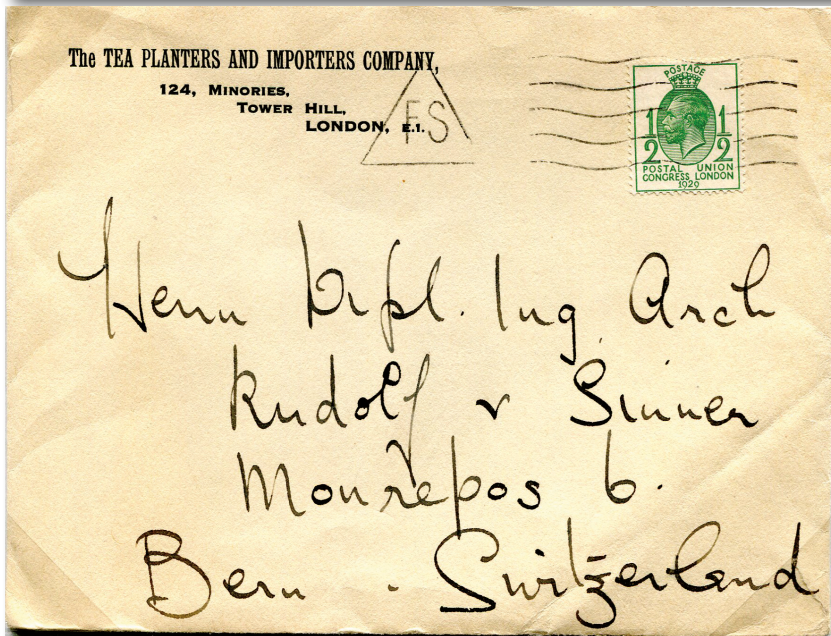 The TEA PLANTERS AND IMPORTERS COMPANY,
124, MINORIES,
TOWER HILL,
LONDON, E.1.
FS
POSTAGE
1/2 1/2
POSTAL UNION
CONGRESS LONDON
1929
Herrn Dipl. Ing. Arch
Rudolf v Sinner
Monrepos 6.
Bern - Switzerland